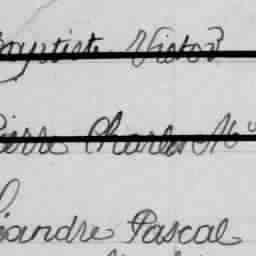 Baptiste Victor
Pierre Charles
iandre Pascal